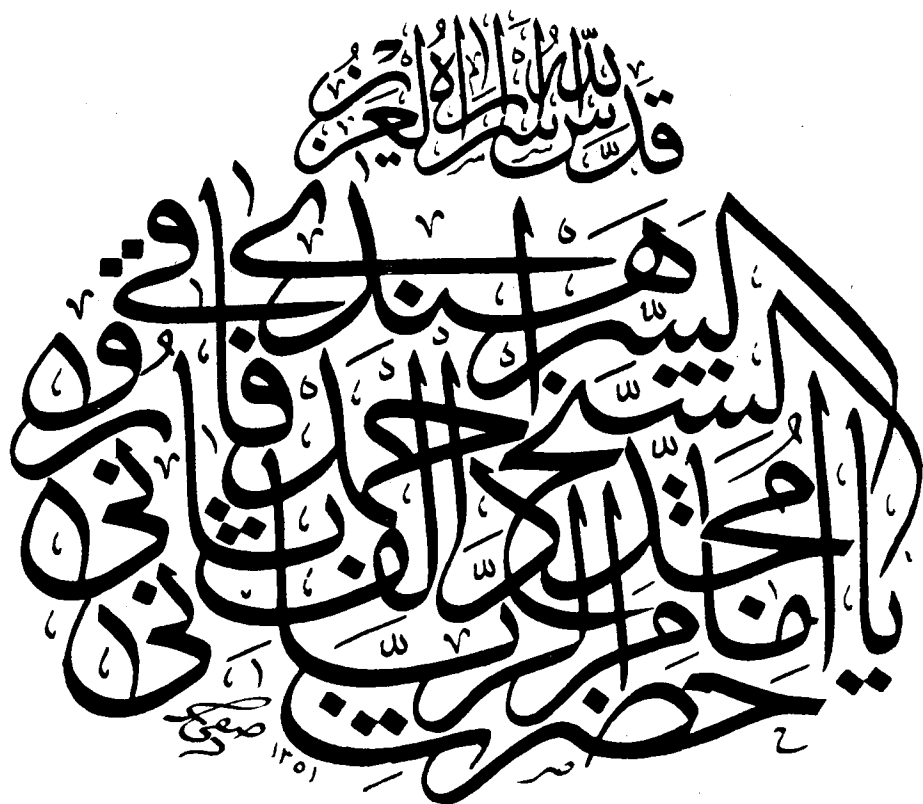 قدس الله اسراره العزيز
يا حضرت امام الربانى
مجدد الف ثانى
الشيخ احمد فاروقى
السرهندى
١٣٥١